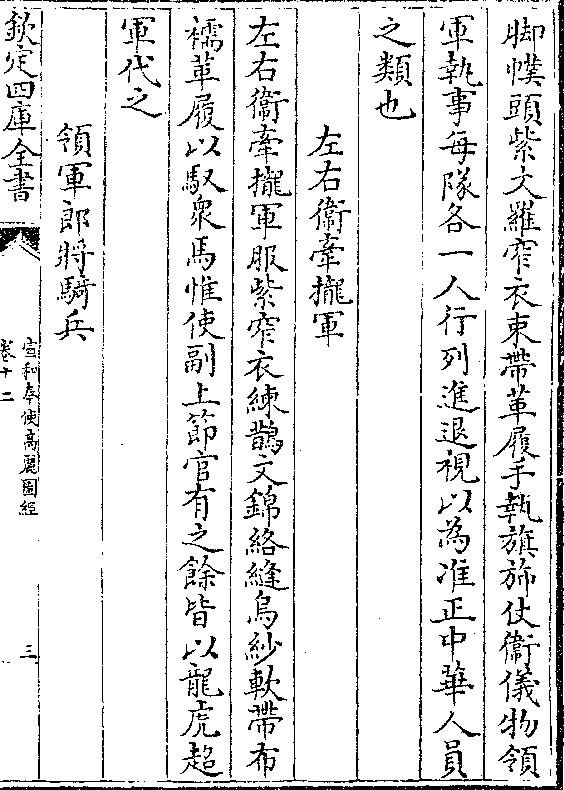 脚幞頭紫文羅窄衣束帶革履手執旗斾仗衞儀物領
軍執事每隊各一人行列進退視以為准正中華人員
之類也
左右衞牽攏軍
左右衞牽攏軍服紫窄衣練鵲文錦絡縫烏紗軟帶布
襦革履以馭衆馬惟使副上節官有之餘皆以龍虎超
軍代之
領軍郎將騎兵
欽定四庫全書
宣和奉使高麗圖經
卷十二
三